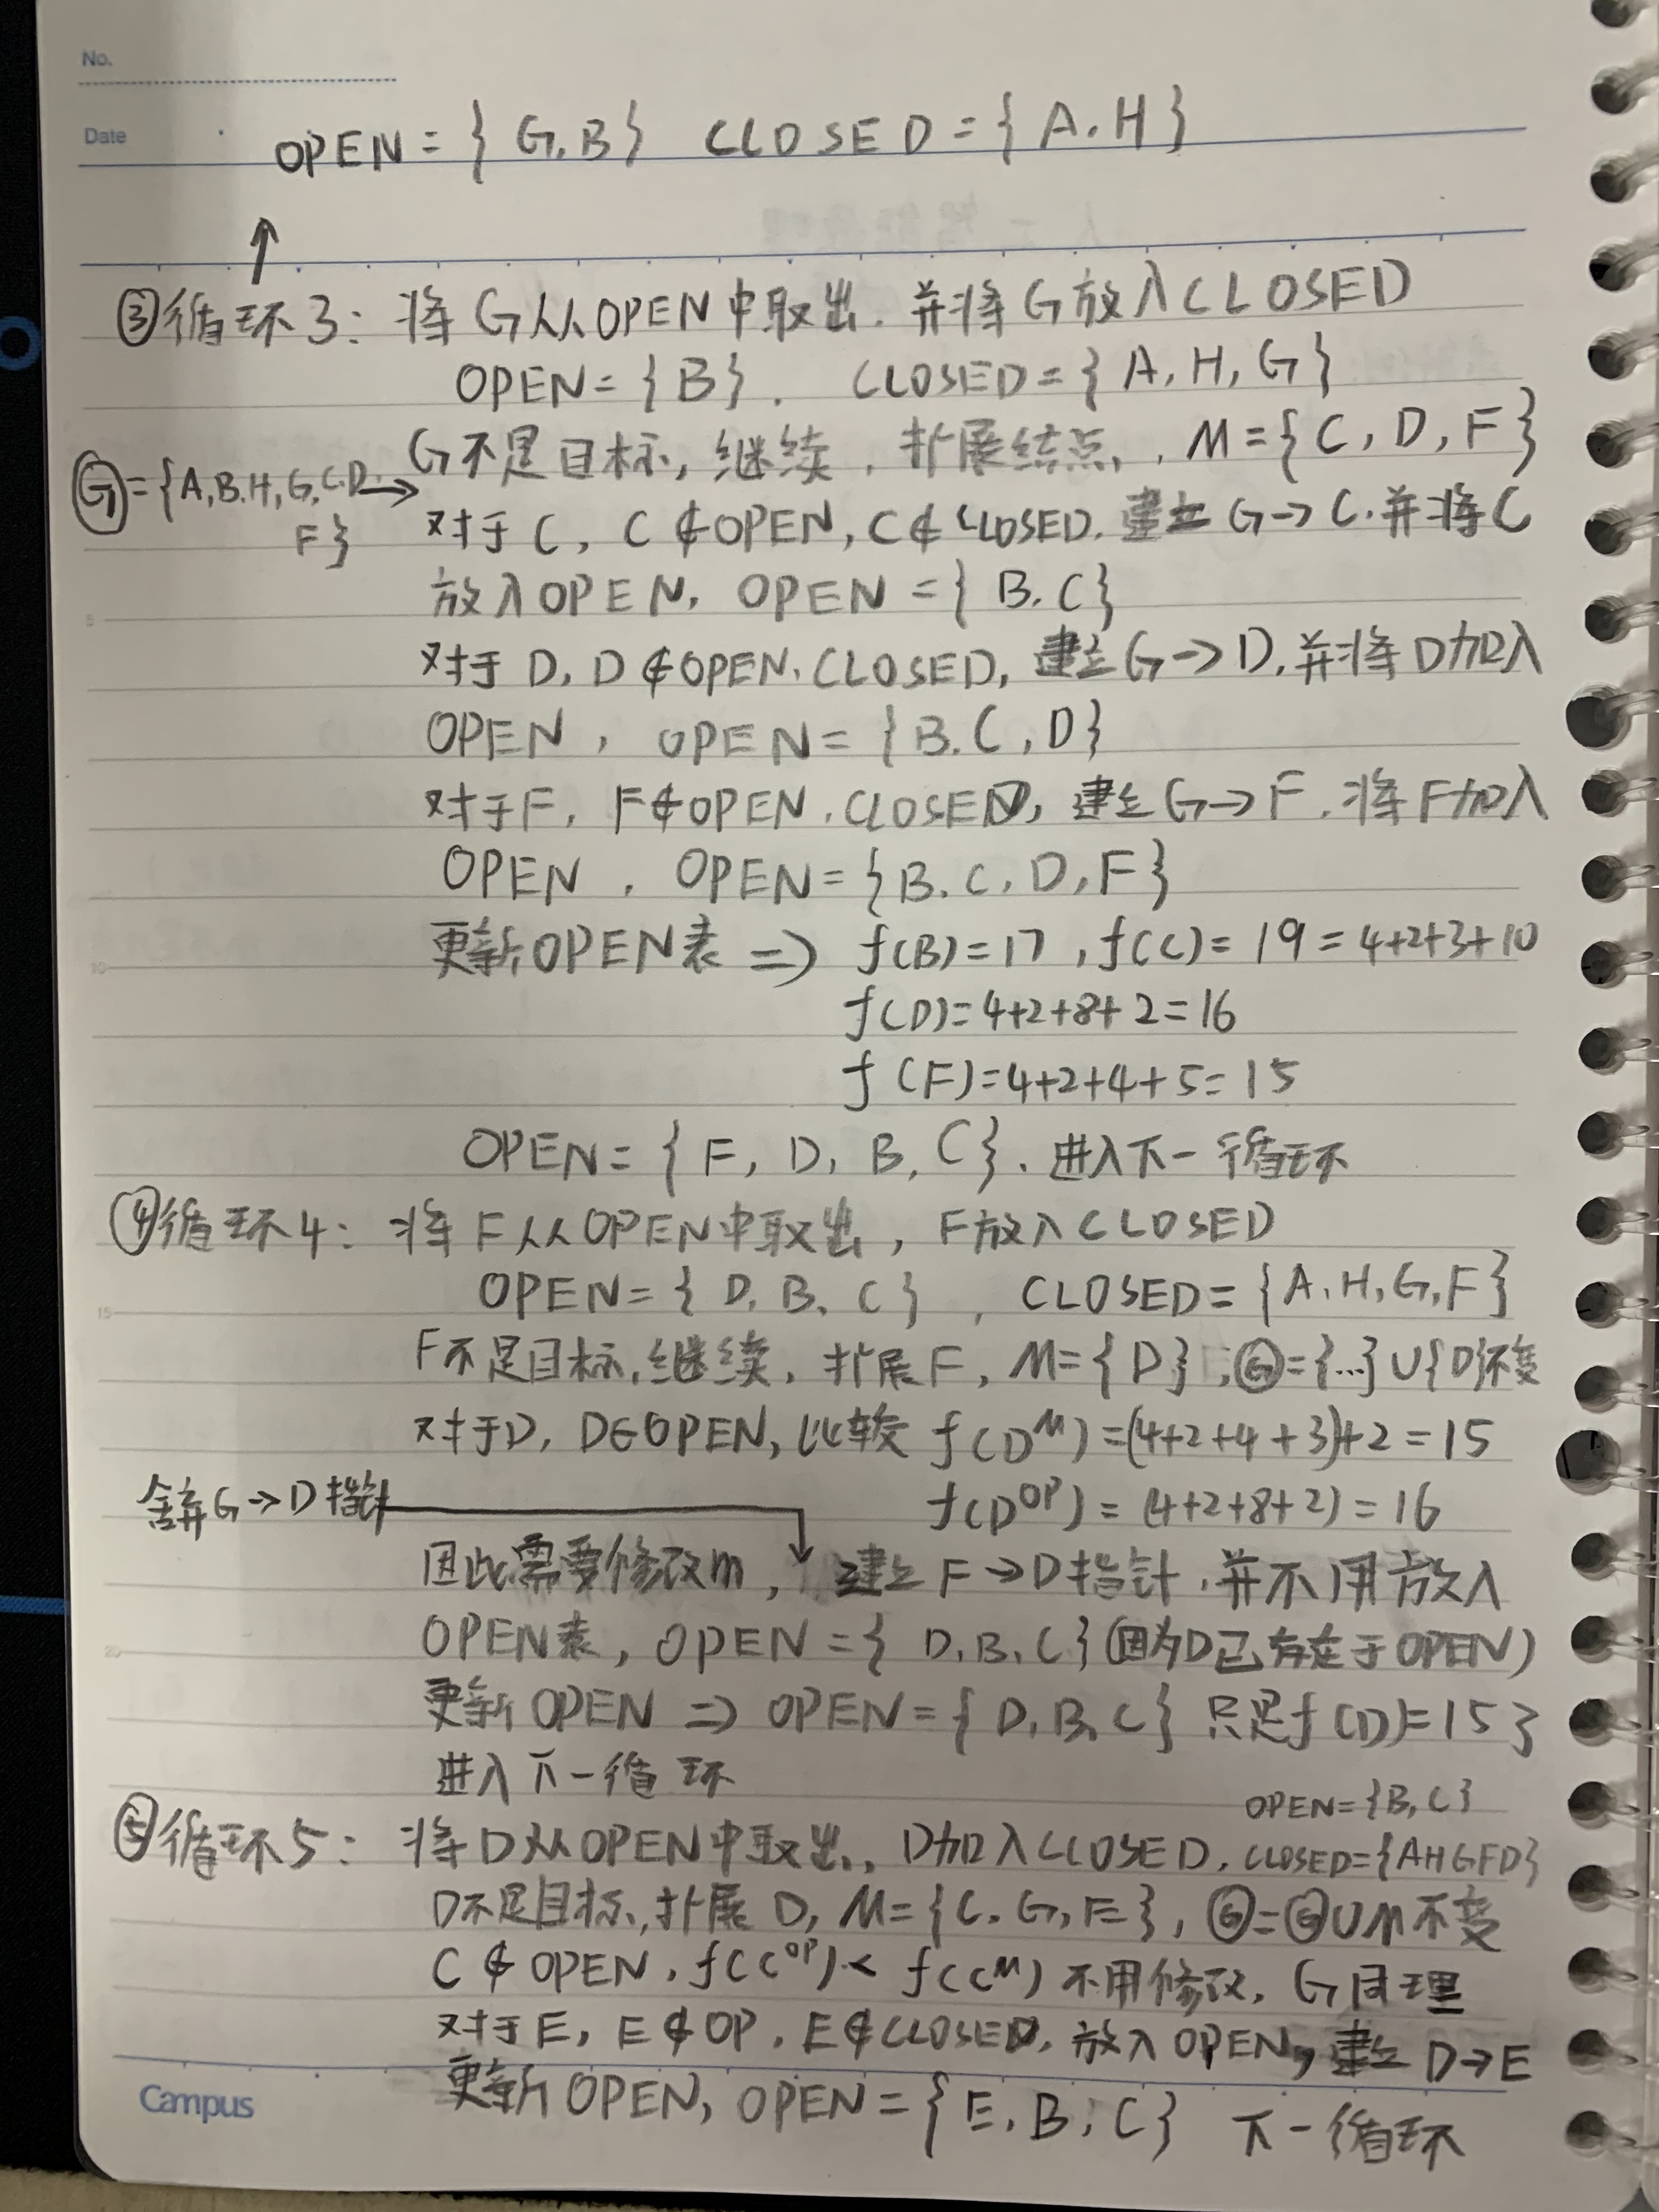 No.
Date
OPEN = { G, B } CLOSED = { A, H }
↑
③循环3: 将G从OPEN中取出. 并将G放入CLOSED
OPEN = {B}, CLOSED = { A, H, G }
G不是目标, 继续, 扩展结点, M = { C, D, F }
Ⓖ = {A,B,H,G,C,D, →
F}
对于C, C∉OPEN, C∉CLOSED. 建立 G→C. 并将C
放入OPEN, OPEN = { B, C }
对于D, D∉OPEN, CLOSED, 建立G→D, 并将D加入
OPEN, OPEN = { B, C, D }
对于F, F∉OPEN, CLOSED, 建立G→F, 将F加入
OPEN, OPEN = { B, C, D, F }
更新OPEN表 ⇒ f(B)=17, f(C)=19=4+2+3+10
f(D)=4+2+8+2=16
f(F)=4+2+4+5=15
OPEN = { F, D, B, C }. 进入下一循环
④循环4: 将F从OPEN中取出, F放入CLOSED
OPEN = { D, B, C }, CLOSED = { A, H, G, F }
F不是目标, 继续, 扩展F, M={ D }, Ⓖ={...}∪{D}不变
对于D, D∈OPEN, 比较 f(Dᴹ)=(4+2+4+3)+2=15
舍弃G→D指针
f(Dᴼᴾ)=(4+2+8+2)=16
因此需要修改m, 建立F→D指针, 并不用放入
OPEN表, OPEN = { D, B, C } (因为D已存在于OPEN)
更新OPEN ⇒ OPEN = { D, B, C } 只是f(D)=15了
进入下一循环
OPEN={B,C}
⑤循环5: 将D从OPEN中取出, D加入CLOSED, CLOSED={AHGFD}
D不是目标, 扩展D, M={C, G, E}, Ⓖ=Ⓖ∪M不变
C∉OPEN, f(Cᴼᴾ) < f(Cᴹ) 不用修改, G同理
对于E, E∉OP, E∉CLOSED, 放入OPEN, 建立D→E
更新OPEN, OPEN = { E, B, C } 下一循环
Campus